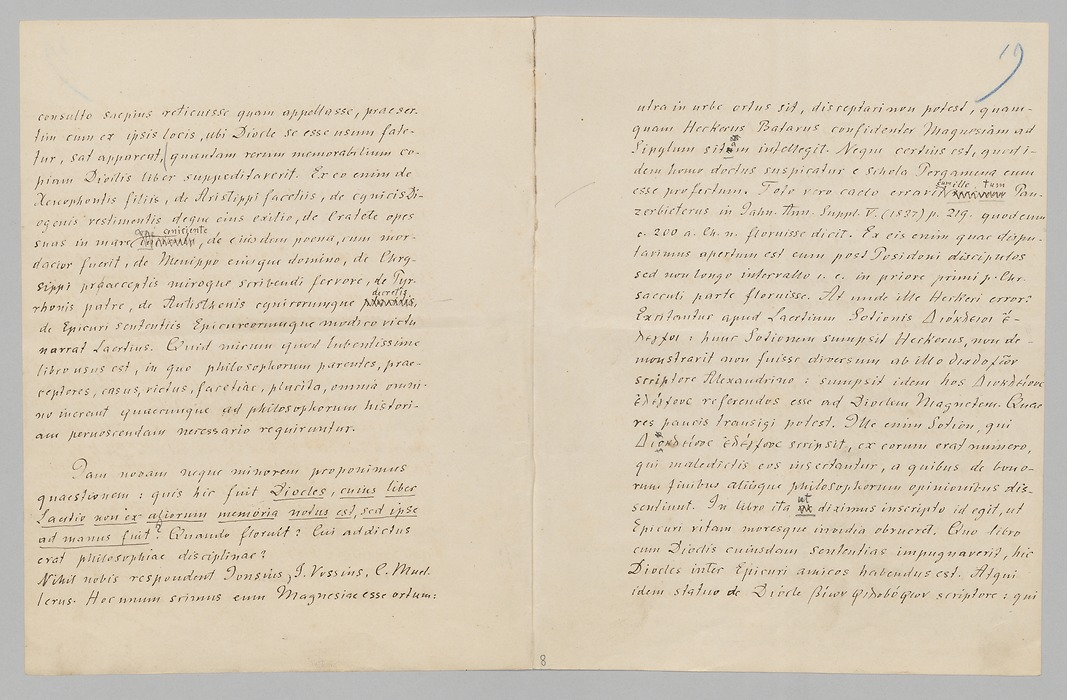 consulto saepius reticuisse quam appellasse, praeser-
tim cum ex ipsis locis, ubi Diocle se esse usum fate-
tur, sat apparent, quantam rerum memorabilium co-
piam Dioclis liber suppeditaverit. Ex eo enim de
Xenophontis filiis, de Aristippi facetiis, de cynicis Di-
ogenis vestimentis deque eius exilio, de Cratete opes
suas in mare coniciente, de eiusdem poena, cum mor-
dacior fuerit, de Menippo eiusque domino, de Chry-
sippi praeceptis miroque scribendi fervore, de Pyr-
rhonis patre, de Antisthenis cynicorumque decretis,
de Epicuri sententiis Epicureorumque modico victu
narrat Laertius. Quid mirum quod lubentissime
libro usus est, in quo philosophorum parentes, prae-
ceptores, casus, victus, facetiae, placita, omnia omni-
no inerant quaecunque ad philosophorum histori-
am pernoscendam necessario requiruntur.
Iam novam neque minorem proponimus
quaestionem: quis hic fuit Diocles, cuius liber
Laertio non ex aliorum memoria notus est, sed ipse
ad manus fuit? Quando floruit? Cui addictus
erat philosophiae disciplinae?
Nihil nobis respondent Ionsius, I. Vossius, C. Muel-
lerus. Hoc unum scimus eum Magnesiae esse ortum:
19
utra in urbe ortus sit, disceptari non potest, quam-
quam Heckerus Batavus confidenter Magnesiam ad
Sipylum sitam intellegit. Neque certius est, quod i-
dem homo doctus suspicatur e schola Pergamena eum
esse profectum. Toto vero caelo erravit cum ille, tum Pan-
zerbieterus in Jahn. Ann. Suppl. V. (1837) p. 219. quod eum
c. 200 a. Ch. n. floruisse dicit. Ex eis enim quae dispu-
tavimus apertum est eum post Posidoni discipulos
sed non longo intervallo i. e. in priore primi p. Chr.
saeculi parte floruisse. At unde ille Heckeri error?
Excitantur apud Laertium Sotionis Διόκλειοι ἔ-
λεγχοι: hunc Sotionem sumpsit Heckerus, non de-
monstravit non fuisse diversum ab illo διαδοχῶν
scriptore Alexandrino: sumpsit idem hos Διοκλείους
ἐλέγχους referendos esse ad Dioclem Magnetem. Quae
res paucis transigi potest. Ille enim Sotion, qui
Διοκλείους ἐλέγχους scripsit, ex eorum erat numero,
qui maledictis eos insectantur, a quibus de bono-
rum finibus aliisque philosophorum opinionibus dis-
sentiunt. In libro ita ut diximus inscripto id egit, ut
Epicuri vitam moresque invidia obrueret. Quo libro
cum Dioclis cuiusdam sententias impugnaverit, hic
Diocles inter Epicuri amicos habendus est. Atqui
idem statuo de Diocle βίων φιλοσόφων scriptore: qui
8